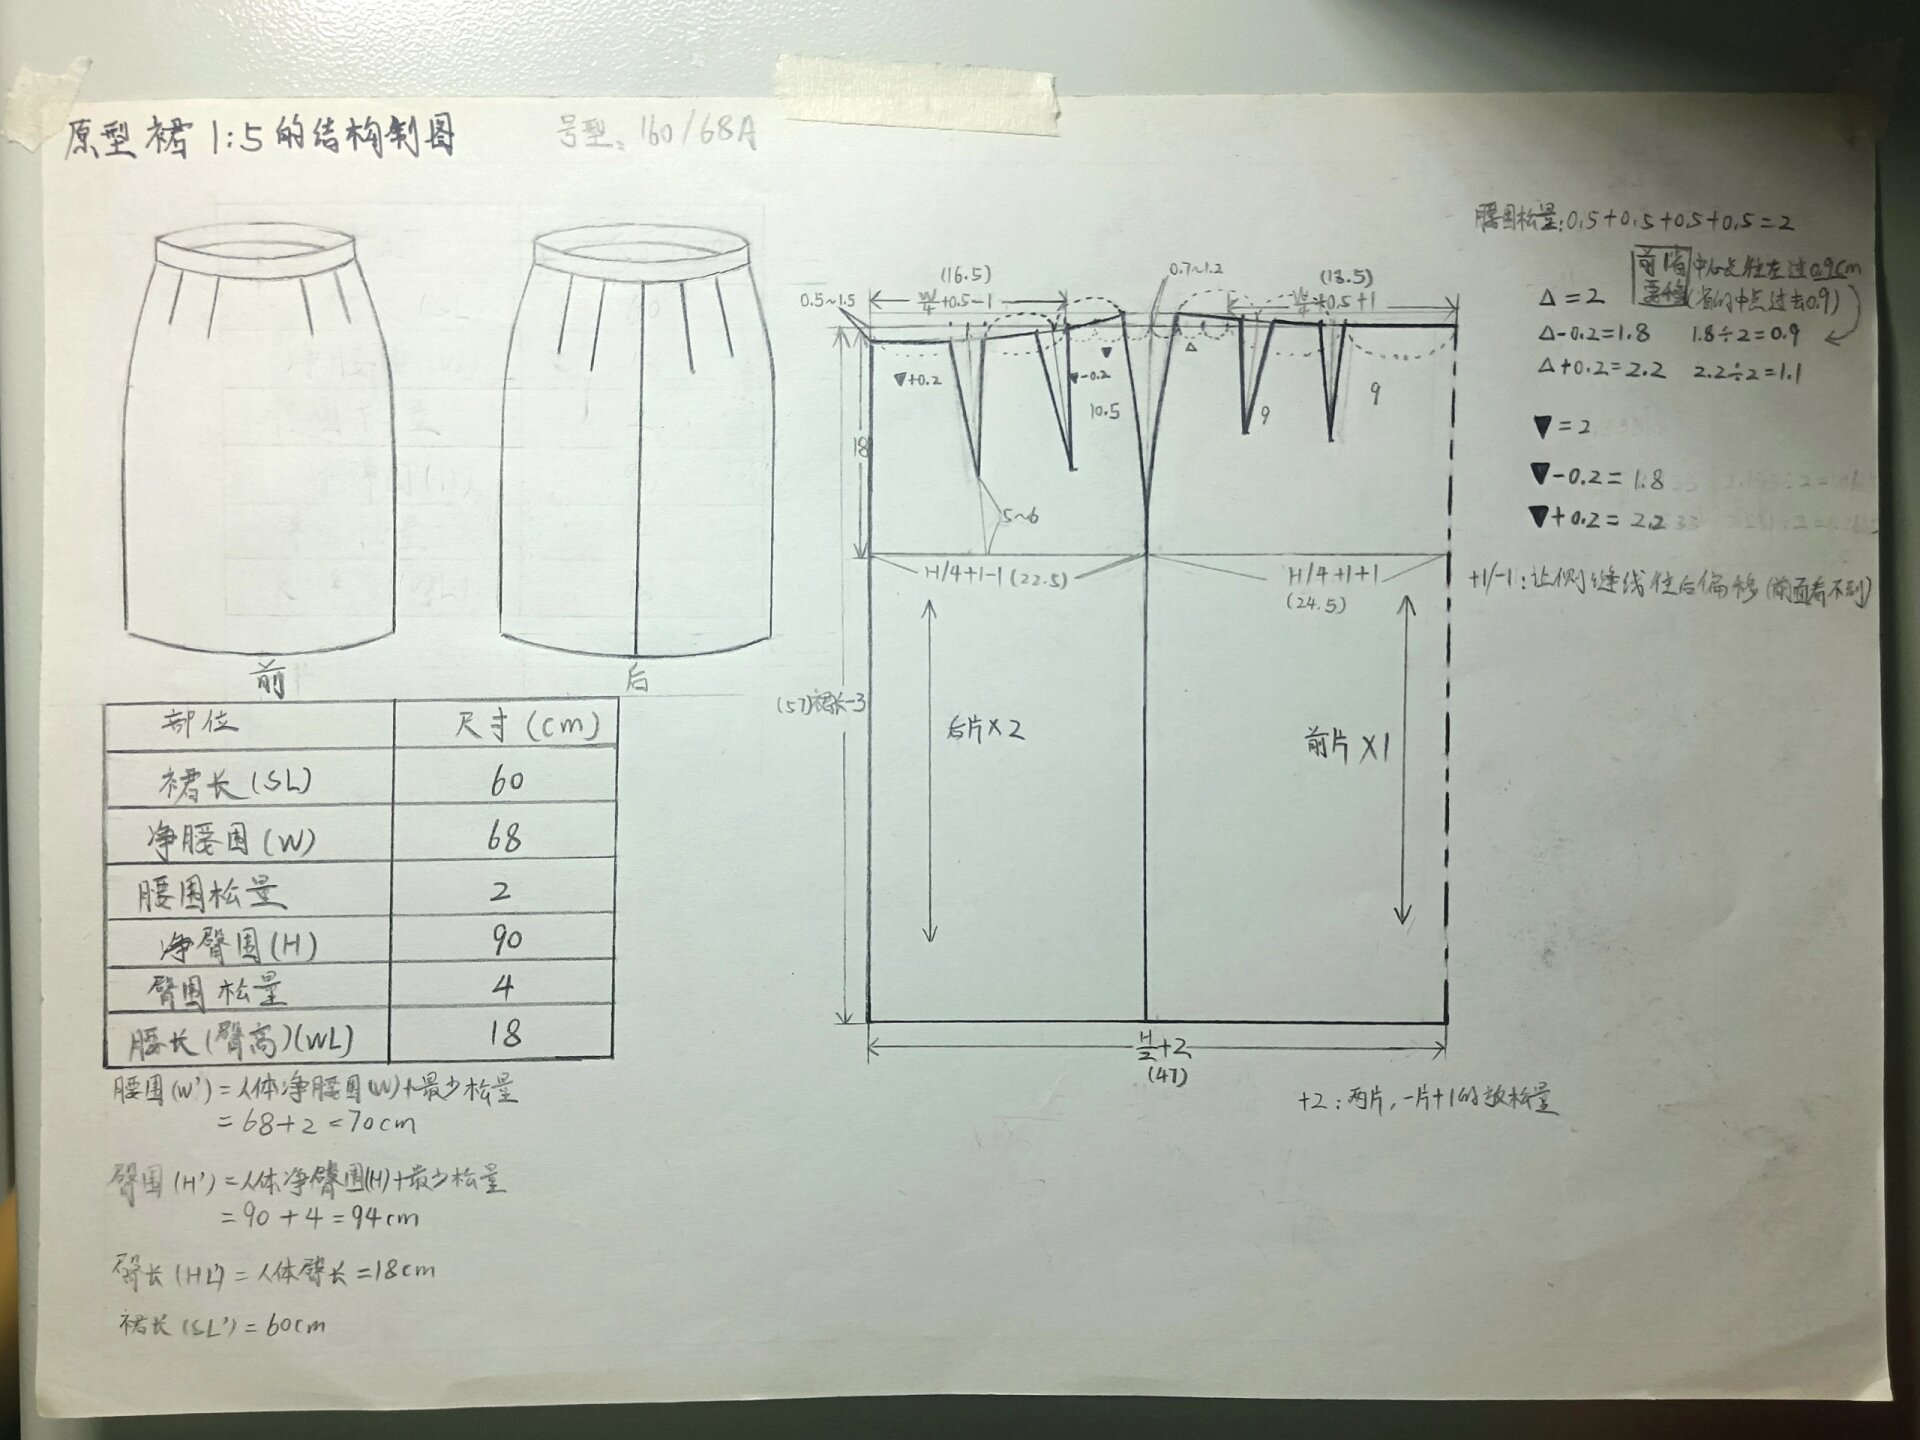 原型裙 1:5的结构制图
号型: 160/68A
前
后
部位 尺寸(cm)
裙长(SL) 60
净腰围(W) 68
腰围松量 2
净臀围(H) 90
臀围松量 4
腰长(臀高)(WL) 18
腰围(W')=人体净腰围(W)+最少松量
=68+2=70cm
臀围(H')=人体净臀围(H)+最少松量
=90+4=94cm
臀长(HL')=人体臀长=18cm
裙长(SL')=60cm
0.5~1.5
(16.5)
W/4+0.5-1
0.7~1.2
(18.5)
W/4+0.5+1
▼+0.2
▼
▼-0.2
10.5
△
9
9
18
5~6
H/4+1-1(22.5)
H/4+1+1
(24.5)
(57)裙长-3
后片×2
前片×1
H/2+2
(47)
+2:两片,一片+1的放松量
腰围松量:0.5+0.5+0.5+0.5=2
前1省 中心点往左过0.9cm
要移 (省的中点过去0.9)
△=2
△-0.2=1.8 1.8÷2=0.9
△+0.2=2.2 2.2÷2=1.1
▼=2
▼-0.2=1.8
▼+0.2=2.2
+1/-1:让侧缝线往后偏移(前面看不到)